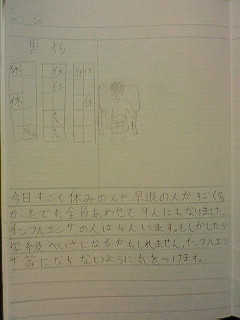 休
休
休休
休
休
今日すごく休みの人や早退の人がすごく多
かったでも全員あわせて9人にもなりました。
インフルエンザの人は4人います。もしかしたら
学級へいさになるかもしれません。インフルエン
ザ等にならないように気をつけます。